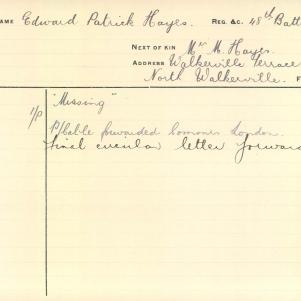 NAME Edward Patrick Hayes. REG. &C. 48th Batt
NEXT OF KIN Mr M. Hayes.
ADDRESS Walkerville Terrace
North Walkerville. F
"Missing"
forwarded London.
Final circular letter forward